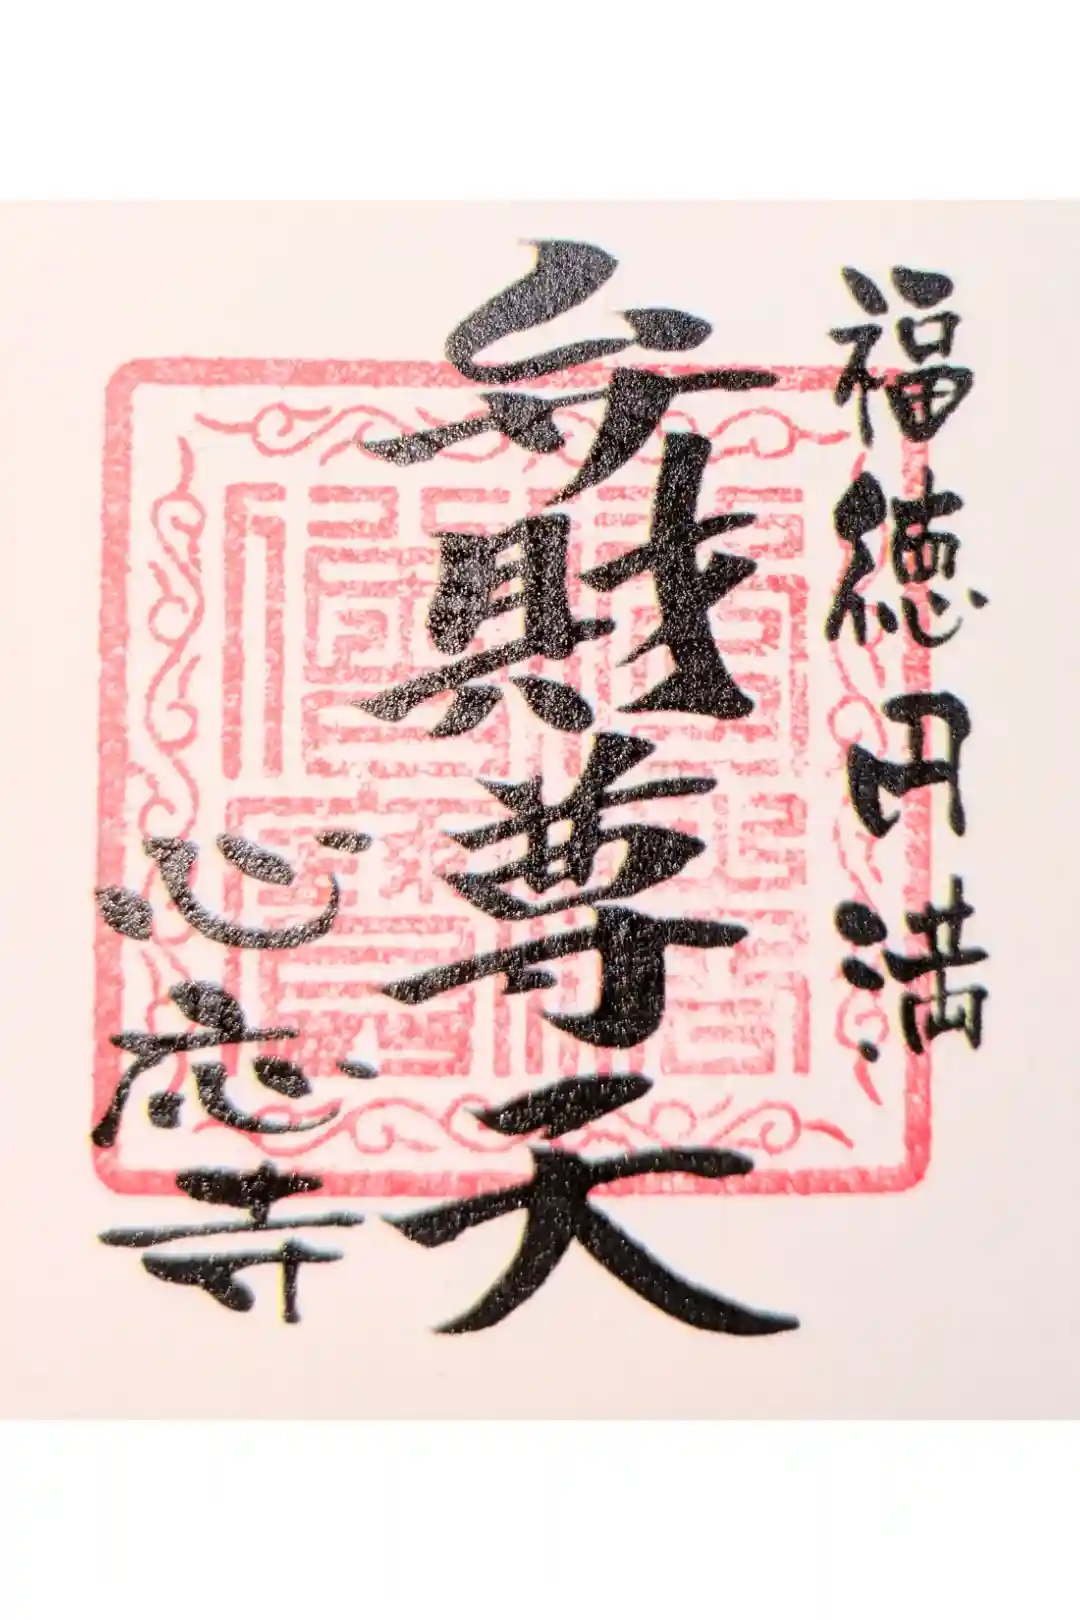 福徳円満
弁財尊天
心応寺